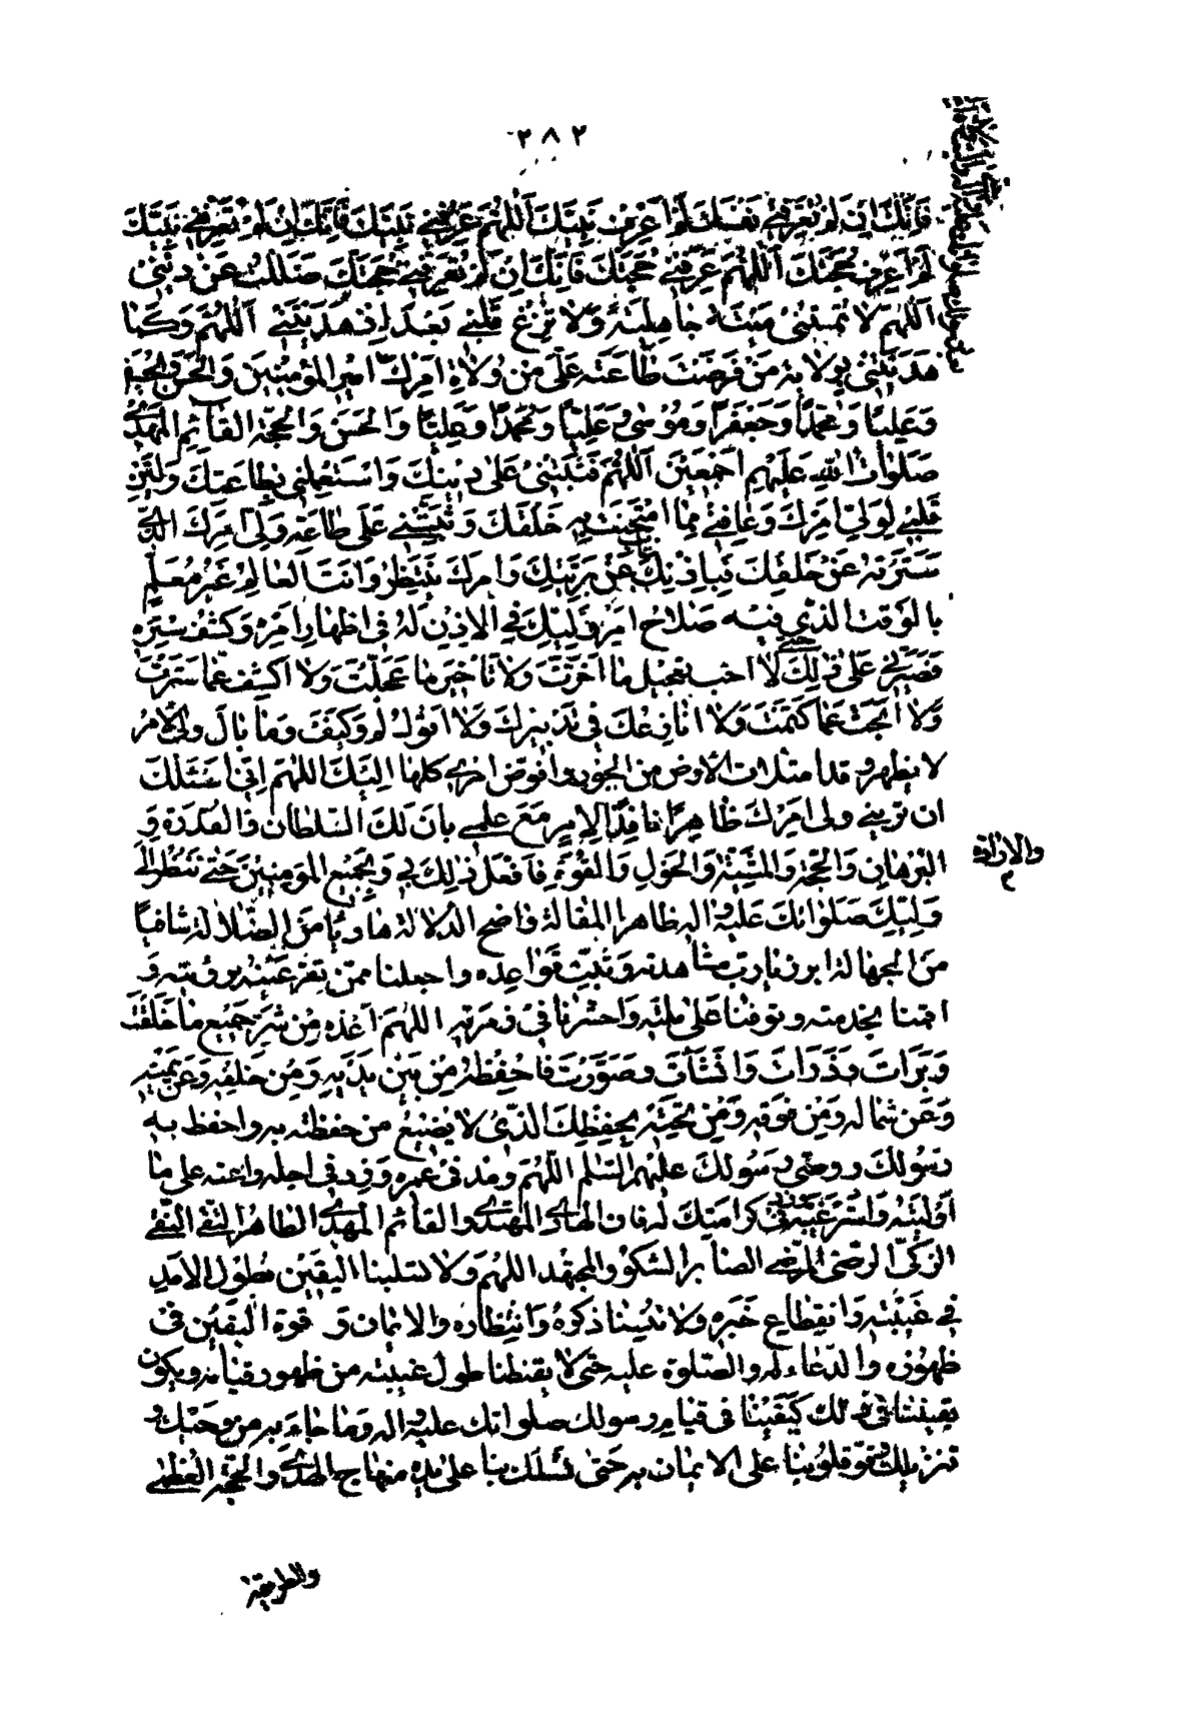 ٢٨٢
فَاِنَّكَ اِنْ لَمْ تُعَرِّفْنِي نَفْسَكَ لَمْ اَعْرِفْ نَبِيَّكَ اَللّٰهُمَّ عَرِّفْنِي نَبِيَّكَ فَاِنَّكَ اِنْ لَمْ تُعَرِّفْنِي نَبِيَّكَ
لَمْ اَعْرِفْ حُجَّتَكَ اَللّٰهُمَّ عَرِّفْنِي حُجَّتَكَ فَاِنَّكَ اِنْ لَمْ تُعَرِّفْنِي حُجَّتَكَ ضَلَلْتُ عَنْ دِيْنِي
اَللّٰهُمَّ لَا تُمِتْنِي مِيْتَةً جَاهِلِيَّةً وَلَا تُزِغْ قَلْبِي بَعْدَ اِذْ هَدَيْتَنِي اَللّٰهُمَّ وَكَمَا
هَدَيْتَنِي بِوِلَايَةِ مَنْ فَرَضْتَ طَاعَتَهُ عَلَيَّ مِنْ وُلَاةِ اَمْرِكَ امير المؤمِنِيْنَ وَالحَسَنَ وَالحُسَيْنَ
وَعَلِيًّا وَمُحَمَّدًا وَجَعْفَرًا وَمُوْسٰى وَعَلِيًّا وَمُحَمَّدًا وَعَلِيًّا وَالحَسَنَ وَالحُجَّةَ القَائِمَ المَهْدِيَّ
صَلَوَاتُ اللّٰهِ عَلَيْهِمْ اَجْمَعِيْنَ اَللّٰهُمَّ فَثَبِّتْنِي عَلٰى دِيْنِكَ وَاسْتَعْمِلْنِي بِطَاعَتِكَ وَلَيِّنْ
قَلْبِي لِوَلِيِّ اَمْرِكَ وَعَافِنِي مِمَّا امْتَحَنْتَ بِهِ خَلْقَكَ وَثَبِّتْنِي عَلَى طَاعَةِ وَلِيِّ اَمْرِكَ الَّذِي
سَتَرْتَهُ عَنْ خَلْقِكَ فَبِاِذْنِكَ غَابَ عَنْ بَرِيَّتِكَ وَاَمْرَكَ يَنْتَظِرُ وَاَنْتَ العَالِمُ غَيْرُ مُعَلَّمٍ
بالوَقْتِ الَّذِي فيه صَلَاحُ اَمْرِ وَلِيِّكَ فِي الاِذْنِ لَهُ فِي اِظهَارِ اَمْرِهِ وَكَشْفِ سِتْرِهِ
فَصَبِّرْنِي عَلَى ذٰلِكَ حَتّٰى لَا احب تعجيل ما اَخَّرْتَ وَلَا تَأخِيْرَ ما عَجَّلْتَ وَلَا اكشف عَمَّا سَتَرْتَ
وَلَا اَبْحَثَ عَمَّا كَتَمْتَ وَلَا اُنَازِعَكَ فِي تَدْبِيْرِكَ وَلَا اَقُوْلَ لِمَ وَكَيْفَ وَمَا بَالُ وَلِيِّ الاَمْرِ
لا يظهر و قد امتلات الارض من الجور وافوّض اموري كلها اِلَيْكَ اَللّٰهُمَّ اِنِّي اَسْئَلُكَ
ان تريني ولي امرك ظاهِرًا نافِذَ الاَمْرِ مَعَ عِلْمِي بِاَنَّ لَكَ السُّلْطَانَ وَالقُدْرَةَ وَ
البُرْهَانَ وَالحُجَّةَ وَالمَشِيَّةَ وَالحَوْلَ وَالقُوَّةَ فَافْعَلْ ذٰلِكَ بِي وَبِجَمِيْعِ المُؤمِنِيْنَ حَتّٰى نَنْظُرَ اِلٰى
والارادة
وَلِيِّكَ صَلَوَاتُكَ عَلَيْهِ وَاٰلِهِ ظاهرَ المَقالَةِ وَاضِحَ الدَّلَالَةِ هَادِيًا مِنَ الضَّلَالَةِ شَافِيًا
مِنَ الجهالة ابرز يا ربّ مشاهدته وَثَبِّتْ قَوَاعِدَه واجعلنا ممن تقرّ عَيْنُهُ برؤيته وَ
اقمنا بخدمته وتوفنا عَلٰى مِلَّتِهِ وَاحْشُرْنَا فِي زمرته اَللّٰهُمَّ اَعِذْهُ مِنْ شَرِّ جَمِيْعِ مَا خَلَقْتَ
وَبَرَاْتَ وَذَرَاْتَ وَاَنْشَأْتَ وَصَوَّرْتَ فَاحْفَظْهُ مِنْ بَيْنِ يَدَيْهِ وَمِنْ خَلْفِهِ وَعَنْ يَمِيْنِهِ
وَعَنْ شِمَالِهِ وَمِنْ فَوْقِهِ وَمِنْ تَحْتِهِ بِحِفْظِكَ الَّذِي لَا يَضِيْعُ مَن حفظته به واحفظ به
رَسُوْلَكَ ووصيّ رَسُوْلِكَ عليهم السَّلَام اَللّٰهُمَّ ومد في عمره وَزِدْ في اجله واعنه على ما
اَوْلَيْتَهُ وَاسْتَرْعَيْتَهُ وزد في كَرَامَتِكَ لَهُ فَاِنَّهُ الهادي المهتدي والقائم المهدي الطاهر التقي النقي
الزكيّ الرضي المرضي الصابر الشكور المجتهد اللهم وَلَا تسلبنا اليَقِيْنَ لِطُوْلِ الاَمَدِ
فِي غَيْبَتِهِ وَانْقِطَاعِ خَبَرِهِ ولا تُنْسِنَا ذِكْرَهُ وَانْتِظَارَه والايمان وَ قوة اليَقِيْنِ فِي
ظهوره والدعاء له والصلوة عليه حتى لا يقنطنا طول غيبته من ظهوره وقيامه ويكون
يقيننا في ذلك كَيَقِيْنِنَا فى قيام رسولك صلواتك عليه واله وَما جَاءَ به من وحيك و
تنزيلك وقوّ قلوبنا على الايمان به حَتى تسلك بنا على يده منهاج الهدى والحجة العظمى
والطريقة